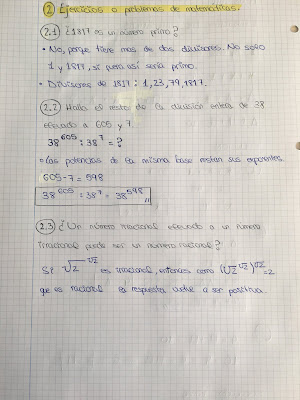 2 Ejercicios o problemas de matemáticas.
2.1) ¿1817 es un número primo?
• No, porque tiene más de dos divisores. No solo
1 y 1817, si fuera así sería primo.
• Divisores de 1817: 1, 23, 79, 1817.
2.2) Halla el resto de la división entera de 38
elevado a 605 y 7.
38^605 : 38^7 = ?
• Las potencias de la misma base restan sus exponentes.
605-7 = 598
38^605 : 38^7 = 38^598 //
2.3) ¿Un número irracional elevado a un número
irracional puede ser un número racional?
Si √2^√2 es irracional, entonces como (√2^√2)^√2 = 2
que es racional la respuesta vuelve a ser positiva.